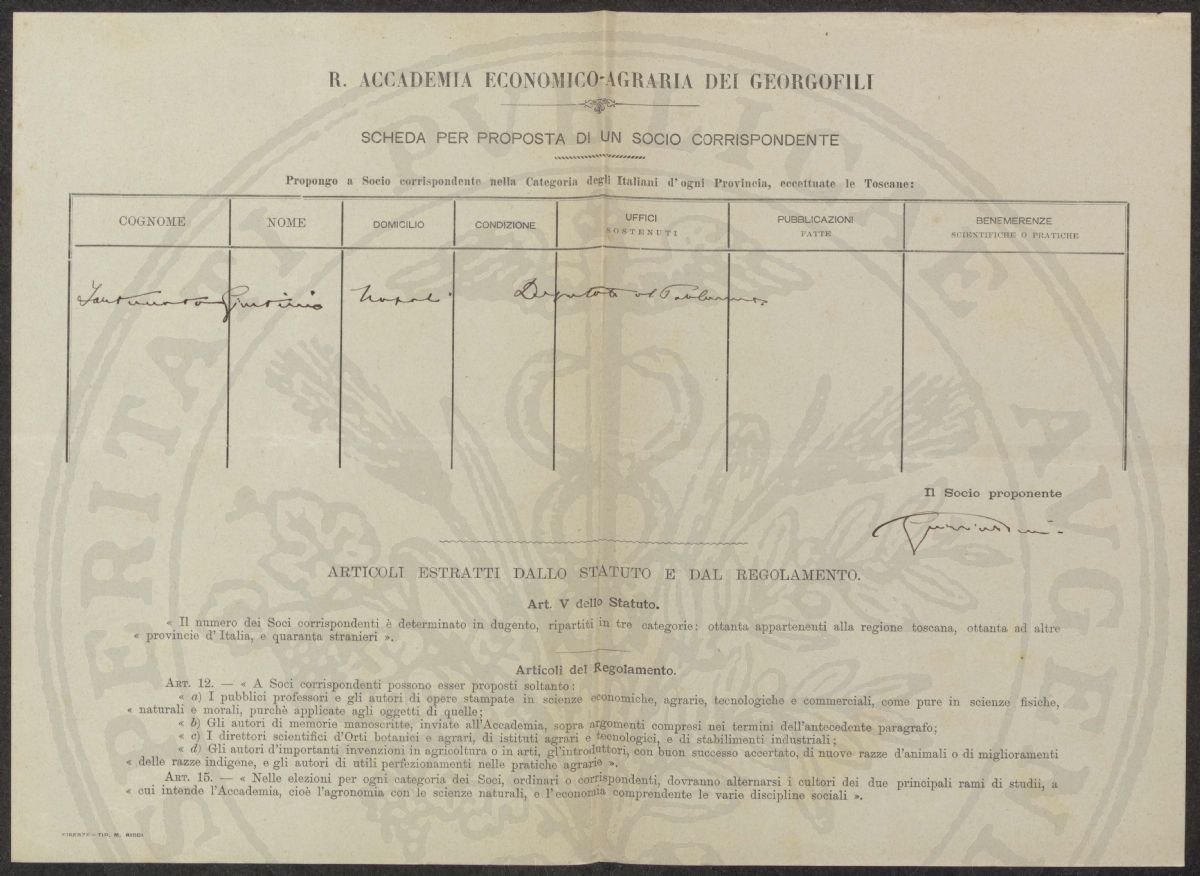 R. ACCADEMIA ECONOMICO-AGRARIA DEI GEORGOFILI
SCHEDA PER PROPOSTA DI UN SOCIO CORRISPONDENTE
Propongo a Socio corrispondente nella Categoria degli Italiani d'ogni Provincia, eccettuate le Toscane:
COGNOME NOME DOMICILIO CONDIZIONE UFFICI SOSTENUTI PUBBLICAZIONI FATTE BENEMERENZE SCIENTIFICHE O PRATICHE
Fortunato Giustino Napoli Deputato al Parlamento.
Il Socio proponente
ARTICOLI ESTRATTI DALLO STATUTO E DAL REGOLAMENTO.
Art. V dello Statuto.
« Il numero dei Soci corrispondenti è determinato in dugento, ripartiti in tre categorie: ottanta appartenenti alla regione toscana, ottanta ad altre
« provincie d'Italia, e quaranta stranieri ».
Articoli del Regolamento.
ART. 12. — « A Soci corrispondenti possono esser proposti soltanto:
« a) I pubblici professori e gli autori di opere stampate in scienze economiche, agrarie, tecnologiche e commerciali, come pure in scienze fisiche,
« naturali e morali, purchè applicate agli oggetti di quelle;
« b) Gli autori di memorie manoscritte, inviate all'Accademia, sopra argomenti compresi nei termini dell'antecedente paragrafo;
« c) I direttori scientifici d'Orti botanici e agrari, di istituti agrari e tecnologici, e di stabilimenti industriali;
« d) Gli autori d'importanti invenzioni in agricoltura o in arti, gl'introduttori, con buon successo accertato, di nuove razze d'animali o di miglioramenti
« delle razze indigene, e gli autori di utili perfezionamenti nelle pratiche agrarie ».
ART. 15. — « Nelle elezioni per ogni categoria dei Soci, ordinari o corrispondenti, dovranno alternarsi i cultori dei due principali rami di studii, a
« cui intende l'Accademia, cioè l'agronomia con le scienze naturali, e l'economia comprendente le varie discipline sociali ».
FIRENZE - TIP. M. RICCI